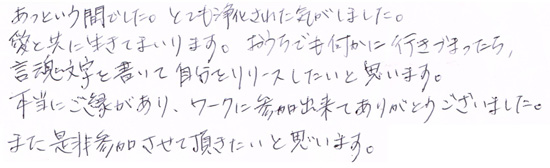 あっという間でした。とても浄化された気がしました。
愛と共に生きてまいります。おうちでも何かに行きづまったら、
言魂文字を書いて自分をリリースしたいと思います。
本当にご縁があり、ワークに参加出来てありがとうございました。
また是非参加させて頂きたいと思います。